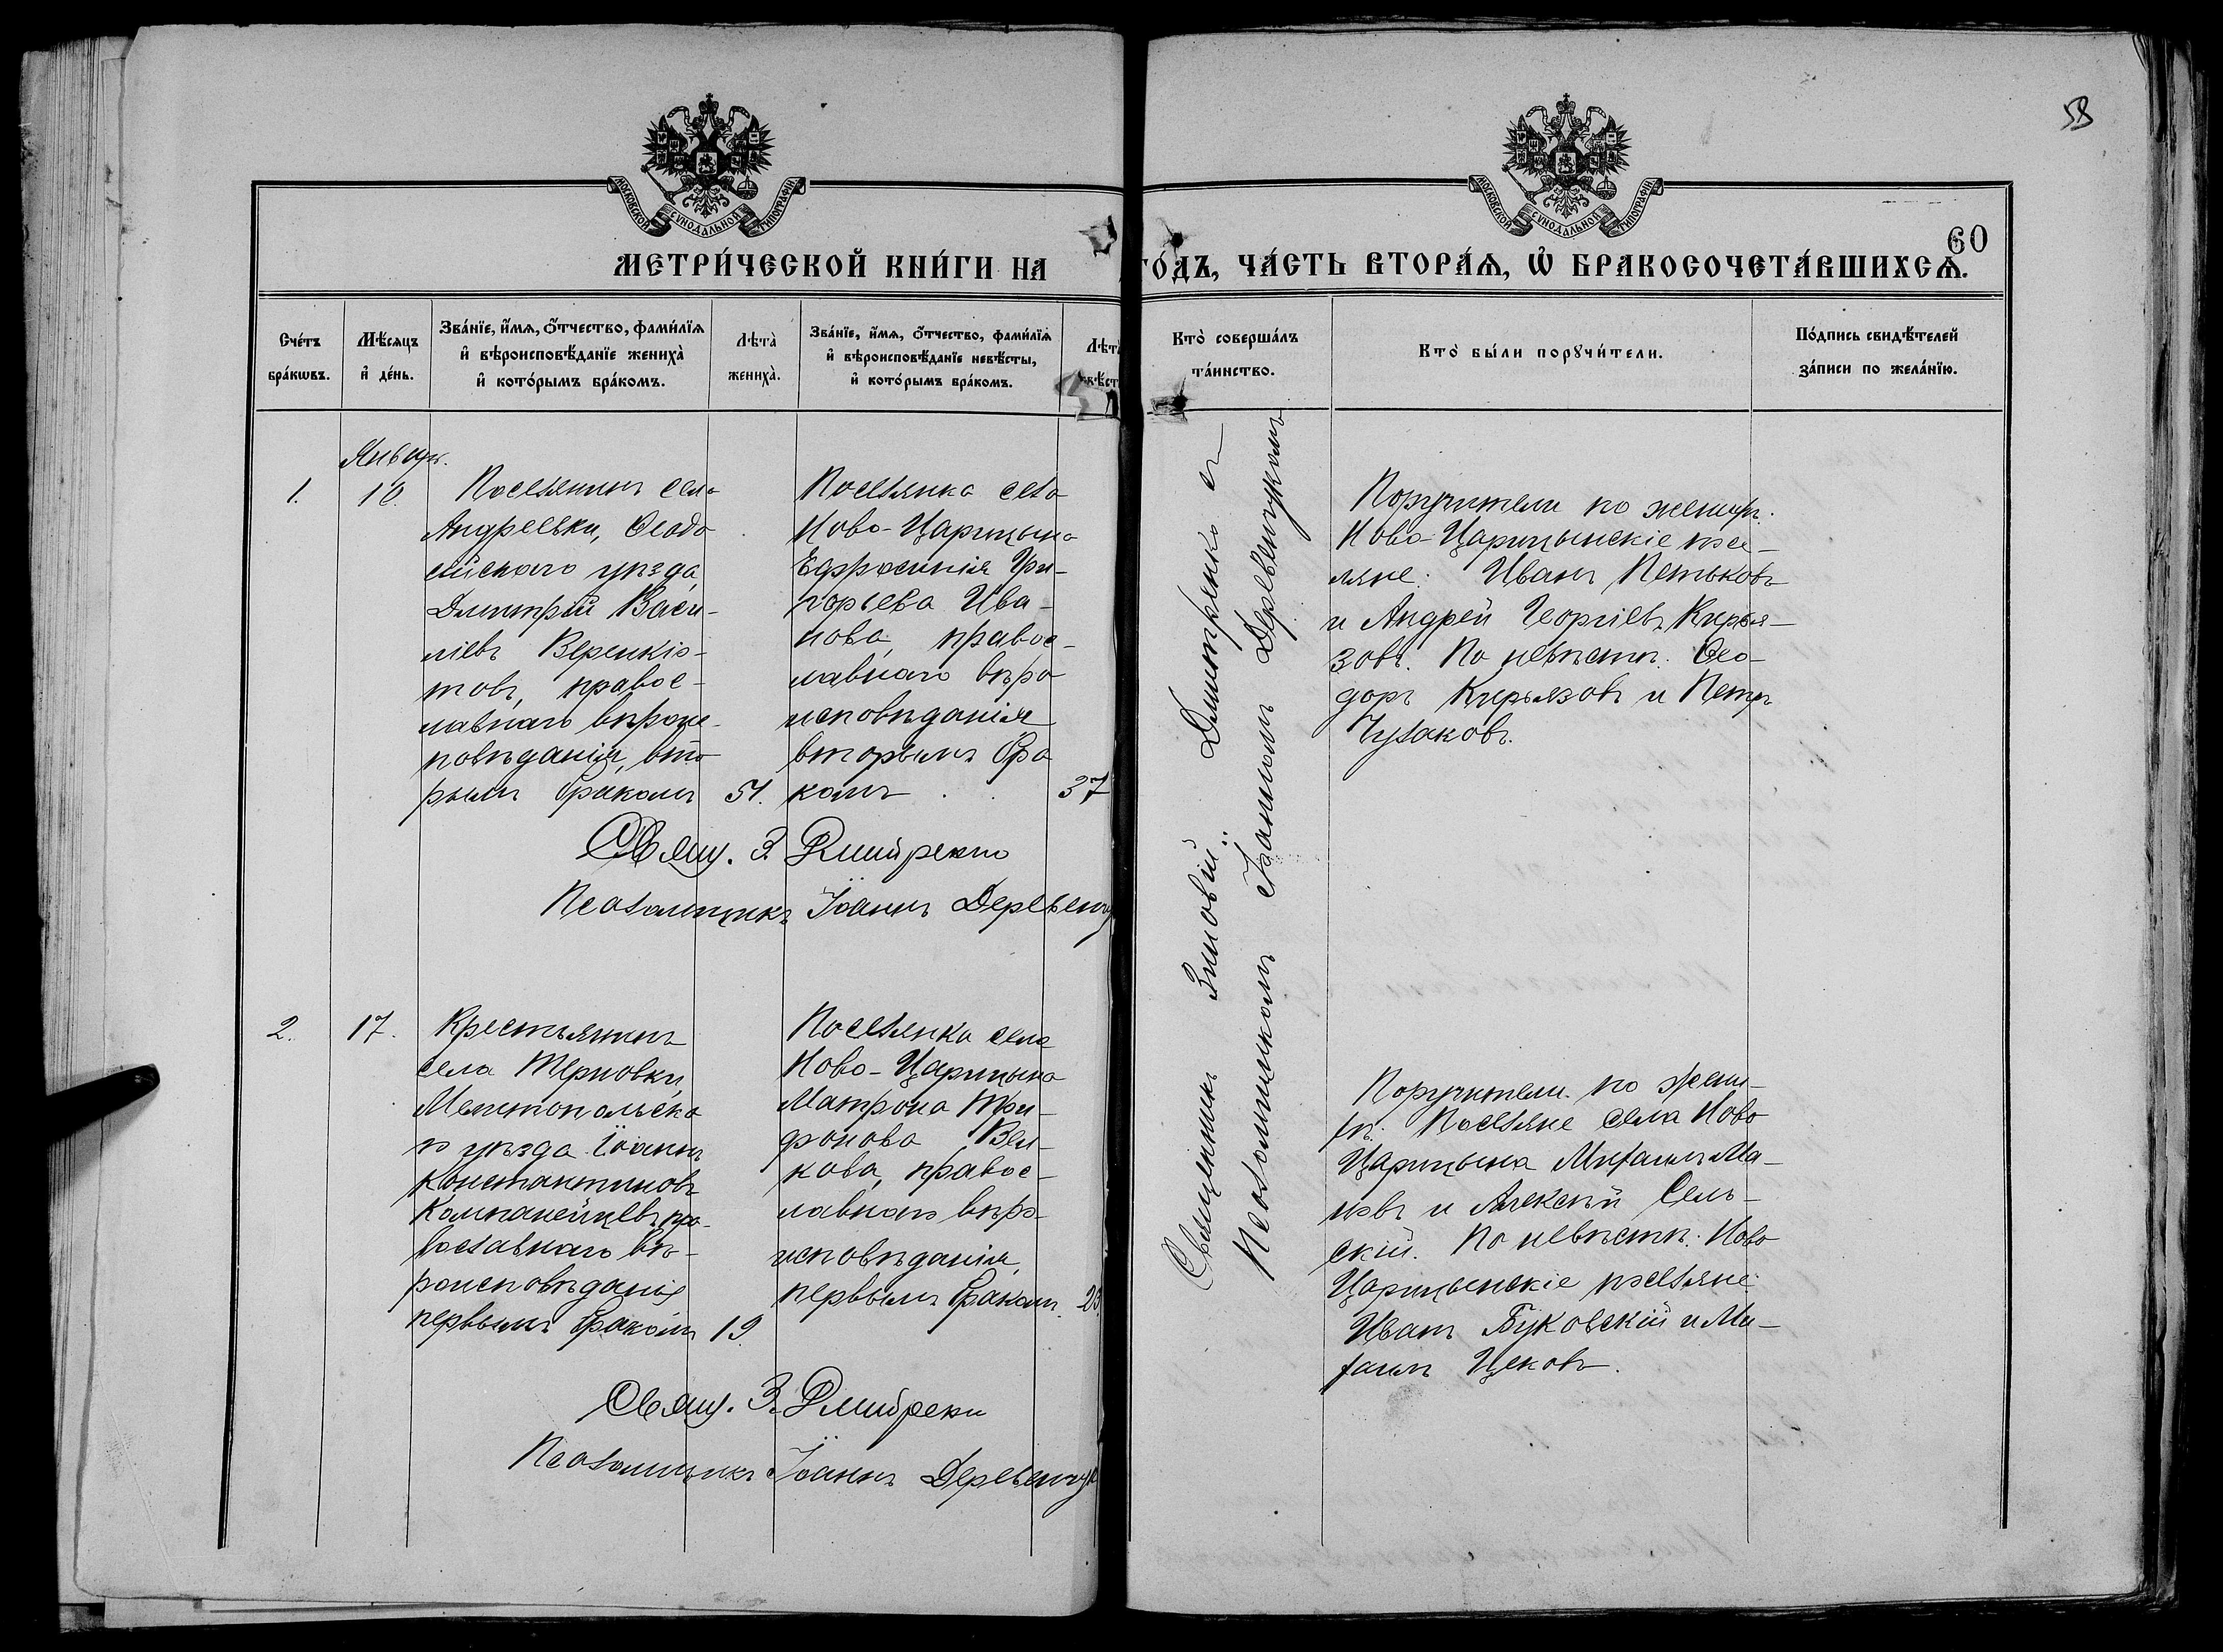 58
МОСКОВСКОЙ СѴНОДАЛЬНОЙ ТИПОГРАФІИ
МОСКОВСКОЙ СѴНОДАЛЬНОЙ ТИПОГРАФІИ
60
МЕТРИ́ЧЕСКОЙ КНИ́ГИ НА
ГО́ДЪ, ЧА́СТЬ ВТОРА́Ѧ, Ѡ҆ БРАКОСОЧЕТА́ВШИХСѦ.
Сче́тъ
бра́кѡвъ.
Мѣ́сяцъ
и҆ де́нь.
Зва́нїе, и҆́мѧ, ѻ҆́тчество, фами́лїѧ
и҆ вѣроисповѣ́данїе жениха̀
и҆ кото́рымъ бра́комъ.
Лѣта̀
жениха̀.
Зва́нїе, и҆́мѧ, ѻ҆́тчество, фами́лїѧ
и҆ вѣроисповѣ́данїе невѣ́сты,
и҆ кото́рымъ бра́комъ.
Лѣта
Кто̀ соверша́лъ
та́инство.
Кто̀ бы́ли порꙋчи́тели.
По́дпись свидѣ́телей
за́писи по жела́нїю.
Январь.
1.
10.
Поселянинъ села
Андреевки, Ѳеодо
сійского уѣзда
Дмитрій Васи-
ліевъ Веренкіо-
товъ, правос-
лавнаго вѣроис-
повѣданія, вто
рымъ бракомъ
51.
Поселянка села
Ново-Царицына
Ефросинія Гри-
горьева Ива-
нова, правос-
лавнаго вѣро
исповѣданія
вторымъ бра
комъ
37
Свящ. З. Дмитренко
Псаломщикъ Іоаннъ Деревенчу
Священникъ Зиновій Дмитренко съ
Псаломщикомъ Іоанномъ Деревенчукомъ
Поручители по женихѣ:
Ново-Царицынскіе посе-
ляне: Иванъ Петьковъ
и Андрей Георгіевъ Кирья-
зовъ. По невѣстѣ: Ѳео-
доръ Кирьязовъ и Петръ
Чулаковъ.
2.
17.
Крестьянинъ
села Терновки,
Мелитопольска
го уѣзда Іоаннъ
Константиновъ
Компанейцевъ, пра-
вославнаго вѣ-
роисповѣданія
первымъ бракомъ
19.
Поселянка села
Ново-Царицына
Матрона Три-
фонова Вел-
кова, правос-
лавнаго вѣро-
исповѣданія,
первымъ бракомъ.
23
Свящ. З. Дмитренко
Псаломщикъ Іоаннъ Деревенчук
Поручители по жени-
хѣ: Поселяне села Ново
Царицына Михаилъ Ма-
новъ и Алексѣй Сель-
скій. По невѣстѣ: Ново
Царицынскіе поселяне:
Иванъ Буковскій и Ми-
хаилъ Цековъ.